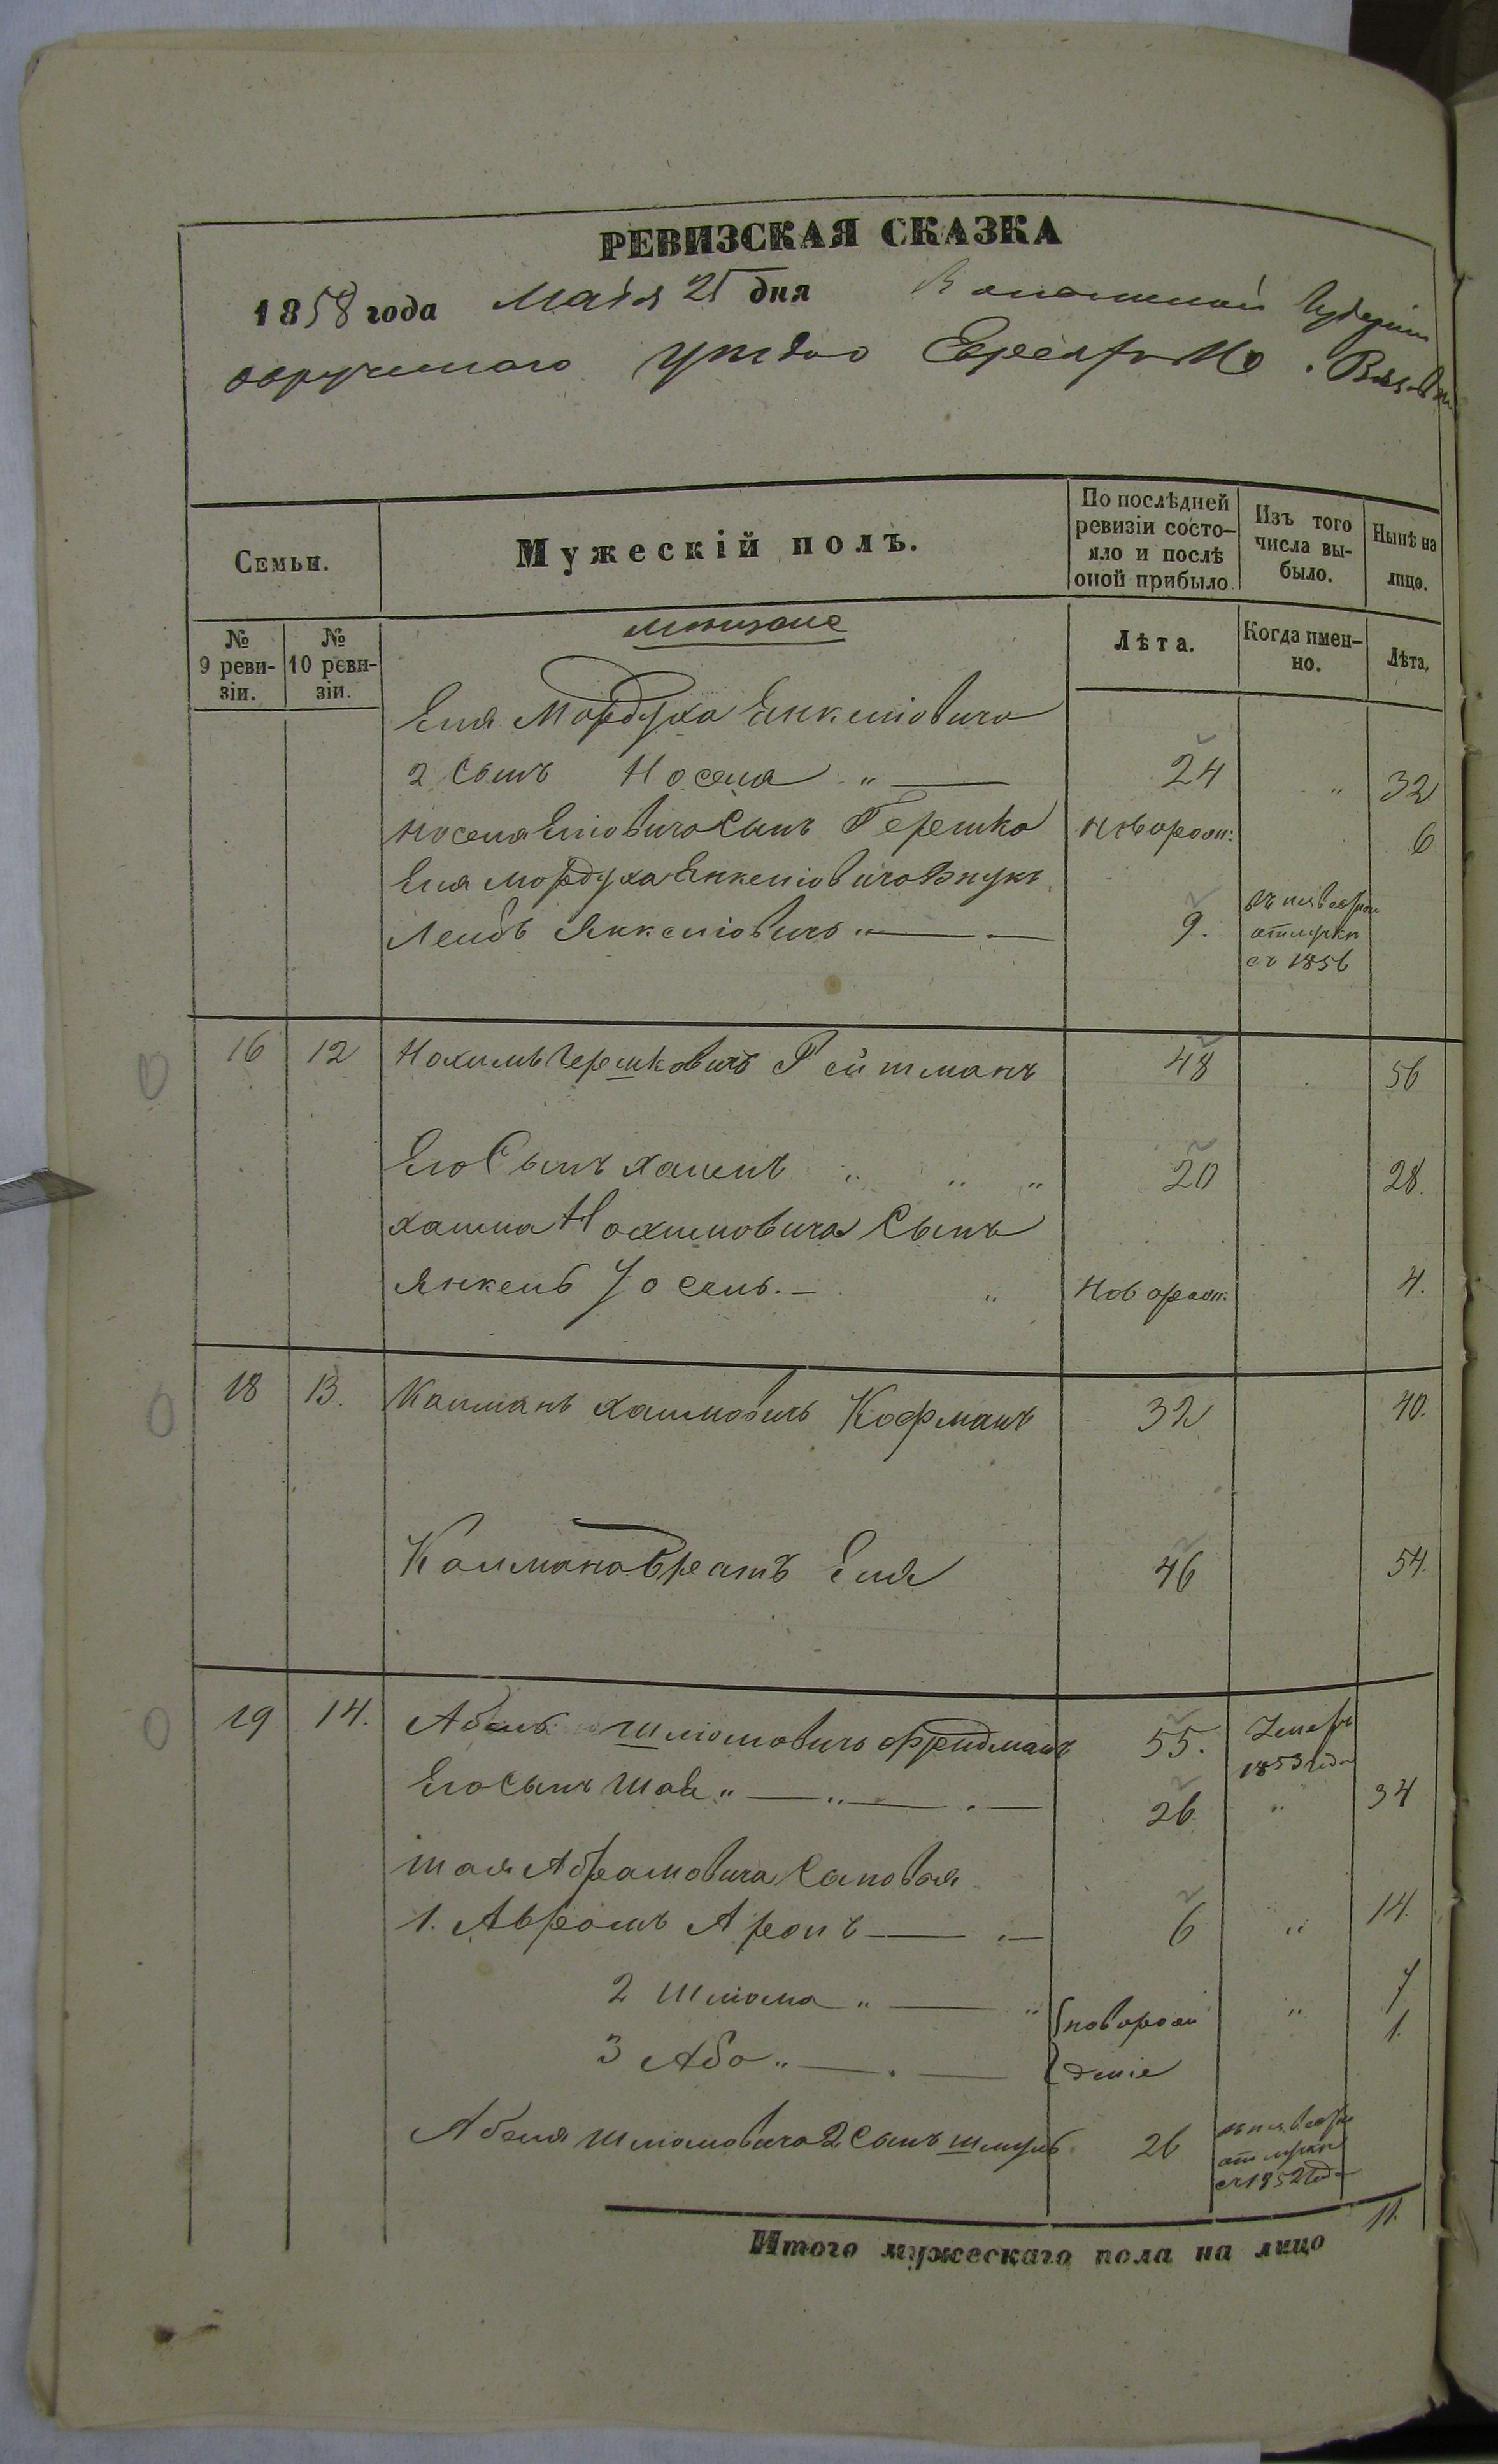 РЕВИЗСКАЯ СКАЗКА
1858 года Маія 25 дня Волынской Губерніи
Овручскаго уѣзда Евреявъ М.
Семьи.
Мужескій полъ.
По послѣдней ревизіи состо-
яло и послѣ
оной прибыло.
Изъ того
числа вы-
было.
Нынѣ на
лицо.
№
9 реви-
зіи.
№
10 реви-
зіи.
мещане
Лѣта.
Когда имен-
но.
Лѣта.
Еля Мордуха Янкелiовича
2 Сынъ Носеля " — 24 " 32
Носеля Елiовича Сынъ Гершко новорож: 6
Еля Мордуха Янкелiовича Внукъ
Лейбъ Янкелiовичъ " — 9. въ неизвестной
отлучке
съ 1856
16 12 Нохимъ Гершковичъ Гейтманъ 48 56
Его Сынъ Хаимъ " " " 20 28.
Хаима Нохимовича Сынъ
Янкель Іосель. — " новорож. 4.
18 13. Калманъ Хаимовичъ Кофманъ 32 40.
Калмана Братъ Еля 46 54.
19 14. Абель Шлiомовичъ Фридманъ 55. Умеръ
1853 года
Его Сынъ Шая " — " — . — 26 " 34
Шая Абрамовича Сыновья
1. Авромъ Аронъ — . — 6 " 14.
2 Шлiома " — " новорож " 7
3 Або " — . — дение 1.
Абеля Шлiомовича 2 Сынъ Шмуль 26 въ неизвестной
отлучке
съ 1852 года
Итого мужескаго пола на лицо 11.